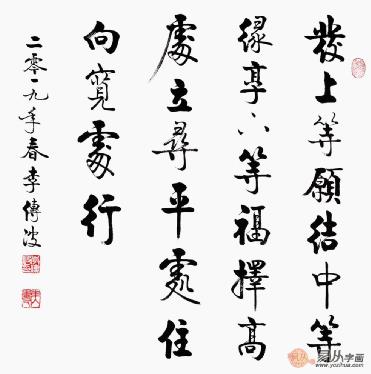 發上等願結中等
緣享下等福擇高
處立尋平處住
向寬處行
二零一九年春李傳波
易从字画
www.yozihua.com